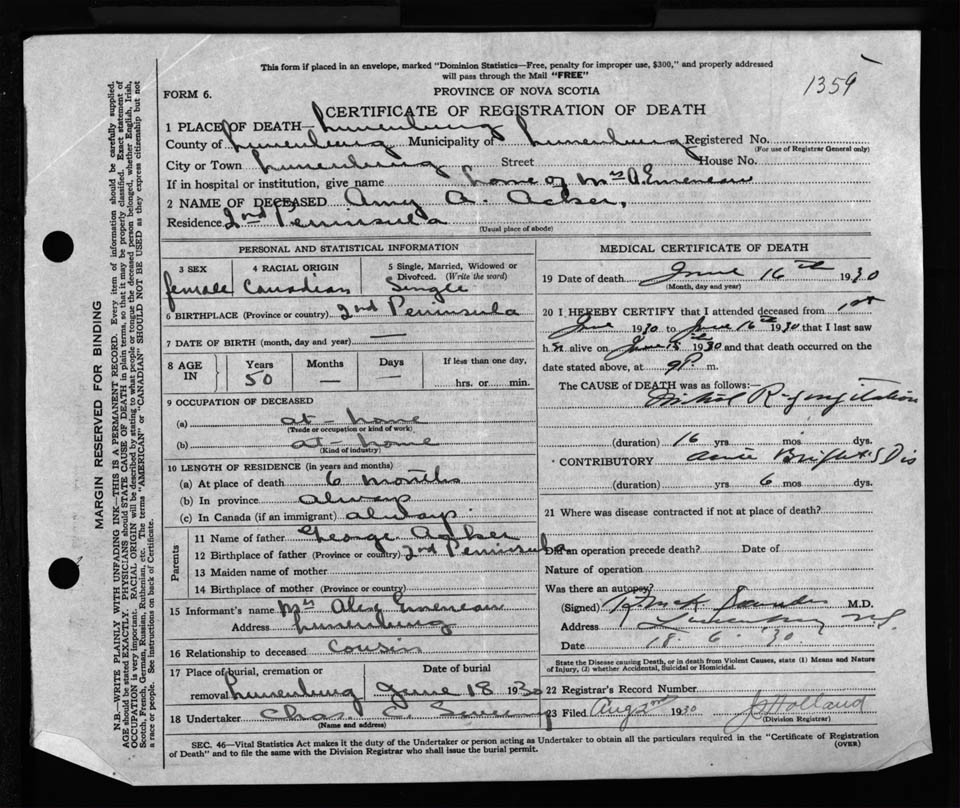 This form if placed in an envelope, marked "Dominion Statistics—Free, penalty for improper use, $300," and properly addressed
will pass through the Mail "FREE"
1359
FORM 6.
PROVINCE OF NOVA SCOTIA
CERTIFICATE OF REGISTRATION OF DEATH
1 PLACE OF DEATH— Lunenburg
County of Lunenburg Municipality of Lunenburg Registered No.
(For use of Registrar General only)
City or Town Lunenburg Street House No.
If in hospital or institution, give name home of Mrs A. Emeneau
2 NAME OF DECEASED Amy A. Acker,
Residence 2nd Peninsula
(Usual place of abode)
PERSONAL AND STATISTICAL INFORMATION
3 SEX
female
4 RACIAL ORIGIN
Canadian
5 Single, Married, Widowed or
Divorced. (Write the word)
Single
6 BIRTHPLACE (Province or country) 2nd Peninsula
7 DATE OF BIRTH (month, day and year) —
8 AGE IN
Years
50
Months
—
Days
If less than one day,
hrs. or min.
9 OCCUPATION OF DECEASED
(a) at-home
(Trade or occupation or kind of work)
(b) at-home
(Kind of industry)
10 LENGTH OF RESIDENCE (in years and months)
(a) At place of death 6 months
(b) In province always
(c) In Canada (if an immigrant) always.
Parents
11 Name of father George Acker
12 Birthplace of father (Province or country) 2nd Peninsula
13 Maiden name of mother
14 Birthplace of mother (Province or country)
15 Informant's name Mrs Alex Emeneau
Address Lunenburg
16 Relationship to deceased cousin
17 Place of burial, cremation or
removal Lunenburg
Date of burial
June 18 1930
18 Undertaker Chas. E.
(Name and address)
MEDICAL CERTIFICATE OF DEATH
19 Date of death June 16th 1930
(Month, day and year)
20 I HEREBY CERTIFY that I attended deceased from 1st
June 1930 to June 16th 1930 that I last saw
h er alive on June 15th 1930 and that death occurred on the
date stated above, at 9P. m.
The CAUSE of DEATH was as follows:—
Mitral Regurgitation
(duration) 16 yrs. mos. dys.
CONTRIBUTORY Acute Bright's Dis
(duration) yrs. 6 mos. dys.
21 Where was disease contracted if not at place of death?
Did an operation precede death? Date of
Nature of operation
Was there an autopsy?
(Signed) M.D.
Address Lunenburg N.S.
Date 18. 6. '30.
State the Disease causing Death, or in death from Violent Causes, state (1) Means and Nature
of Injury, (2) whether Accidental, Suicidal or Homicidal.
22 Registrar's Record Number
23 Filed Aug 2nd 1930 Holland
(Division Registrar)
SEC. 46—Vital Statistics Act makes it the duty of the Undertaker or person acting as Undertaker to obtain all the particulars required in the "Certificate of Registration
of Death" and to file the same with the Division Registrar who shall issue the burial permit.
(OVER)
MARGIN RESERVED FOR BINDING
N.B.—WRITE PLAINLY WITH UNFADING INK—THIS IS A PERMANENT RECORD. Every item of information should be carefully supplied.
AGE should be stated EXACTLY. PHYSICIANS should STATE CAUSE OF DEATH in plain terms, so that it may be properly classified. Exact statement of
OCCUPATION is very important. RACIAL ORIGIN will be described by stating to what people or tongue the deceased person belonged, whether English, Irish,
Scotch, French, German, Russian, Ruthenian, etc. The terms "AMERICAN" or "CANADIAN" SHOULD NOT BE USED as they express citizenship but not
a race or people. See instructions on back of Certificate.